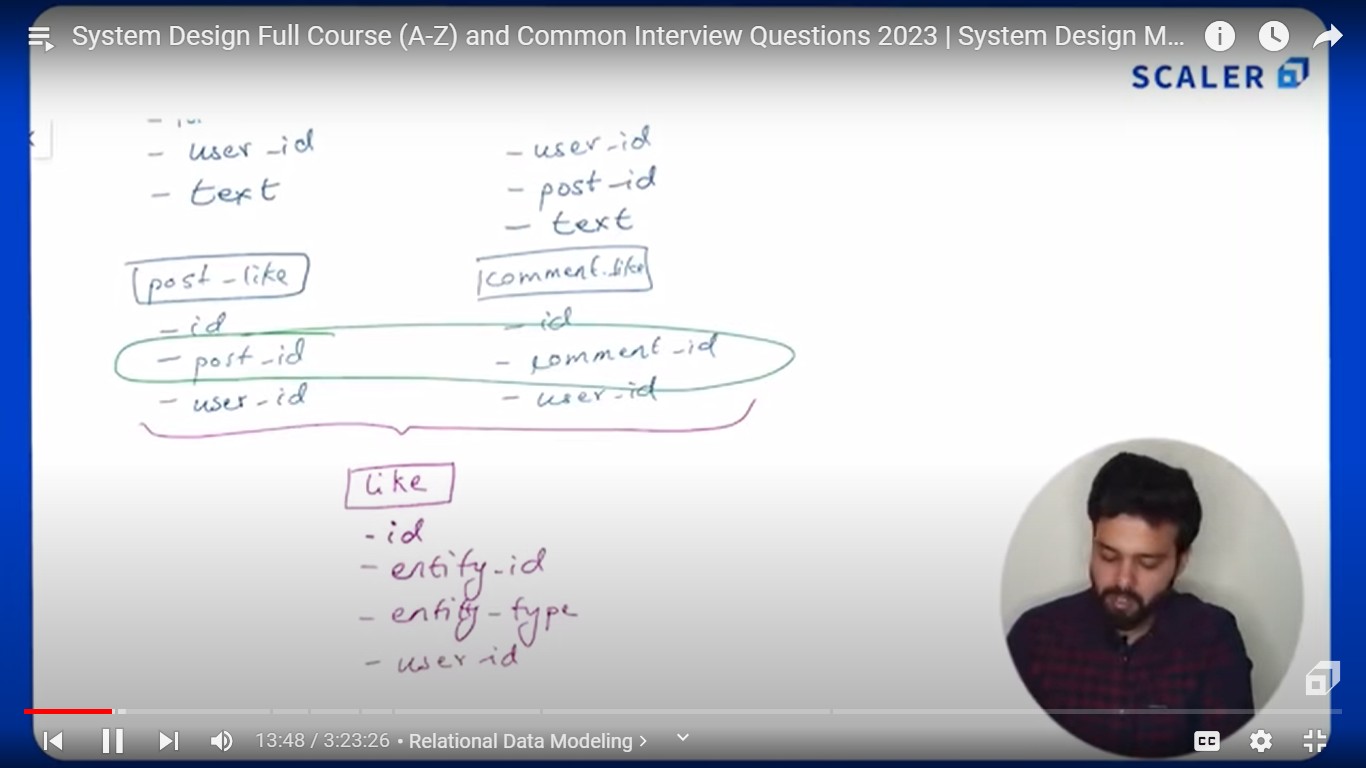 System Design Full Course (A-Z) and Common Interview Questions 2023 | System Design M...
SCALER
- user_id
- text
- user_id
- post_id
- text
post_like
- id
- post_id
- user_id
comment_like
- id
- comment_id
- user_id
like
- id
- entity_id
- entity_type
- user_id
13:48 / 3:23:26 • Relational Data Modeling >
CC